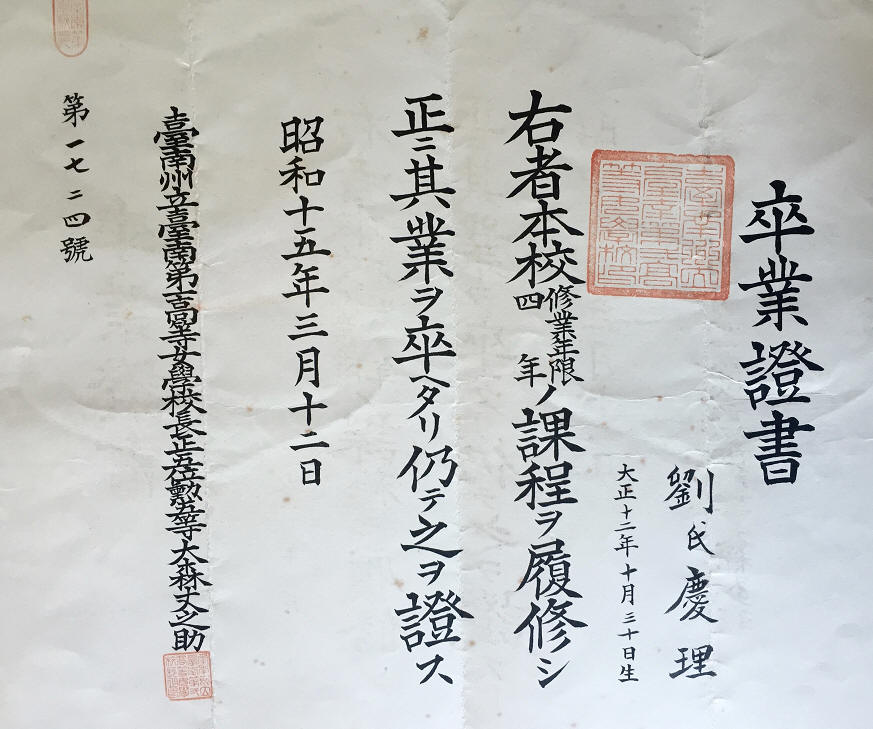 卒業證書
劉氏慶理
大正十二年十月三十日生
右者本校修業年限四年ノ課程ヲ履修シ
正ニ其業ヲ卒ヘタリ仍テ之ヲ證ス
昭和十五年三月十二日
臺南州立臺南第一高等女學校長正五位勲五等大森丈之助
第一七二四號